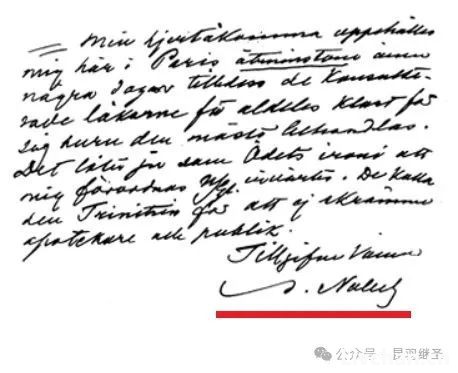 Min hjertåkomma uppehåller
mig här i Paris åtminstone ännu
några dagar tilldess de Konsulte-
rade läkarne få aldeles klart för
sig huru den måste behandlas.
Det låter ju som Ödets ironi att
mig förordnas N/gl. invärtes. De kalla
den Trinitrin för att ej skrämma
apotekare och publik.
Tillgifne Vännen
A. Nobel
公众号 · 昆羽继圣